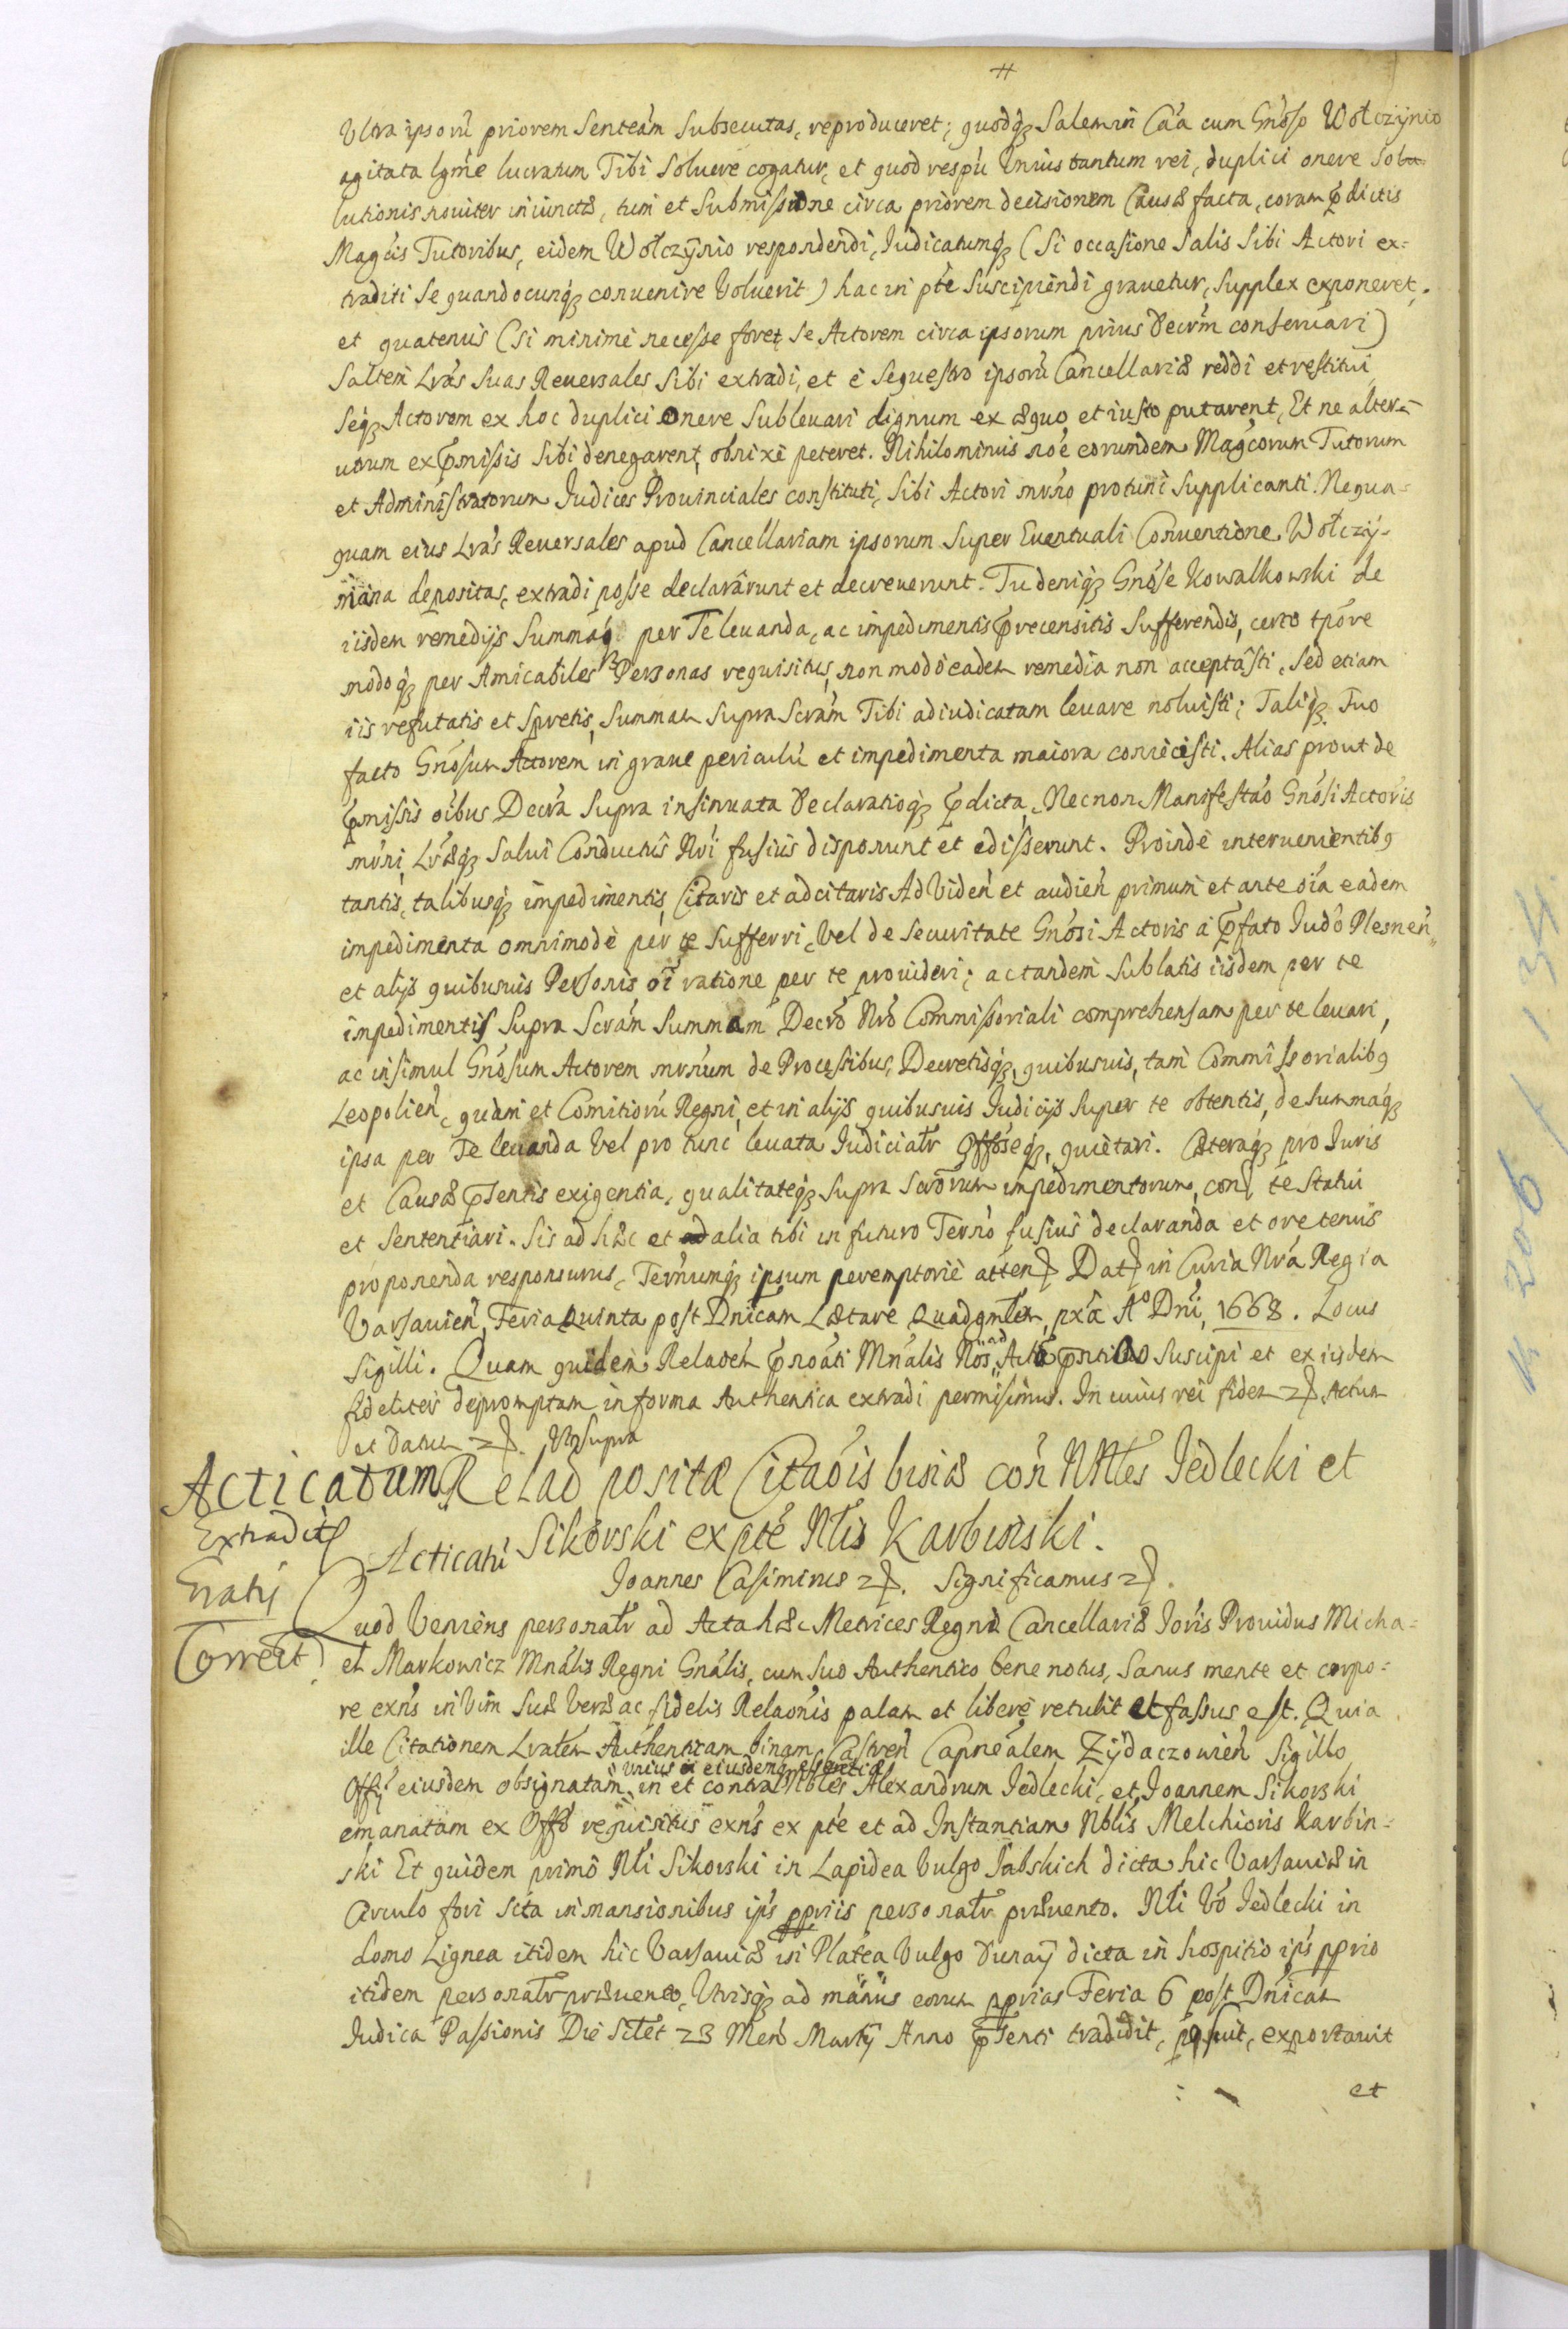 #
Ultra ipsorũ priorem Senteãm Subsecutas, reproduceret; quodq̃ Salem in Cãa cum Gnõso Wołczÿnio
agitata lgm̃e lucratum Tibi Soluere cogatur, et quod respũ Unius tantum rei, duplici onere So
lutionis nouiter iniunctæ, tum et Submissione circa priorem decisionem Causæ facta, coram p̃dictis
Magcis Tutoribus, eidem Wołczÿnio respondendi, Iudicatumq̃ (Si occasione Salis Sibi Actori ex=
traditi Se quandocunq̃ conuenire Voluerit) hac in pt̃e Suscipiendi grauetur, Supplex exponeret,
et quatenus (Si minime necesse foret Se Actorem circa ipsorum prius Decrm̃ conseruari)
Saltem Lrãs Suas Reuersales Sibi extradi, et e Sequestro ipsorũ Cancellariæ reddi et restitui
Seq̃ Actorem ex hoc duplici onere Subleuari dignum ex æquo et iusto putarent, Et ne alter=
utrum ex p̃missis Sibi denegarent, obnixe peteret. Nihilominus nõe eorundem Magcorum Tutorum
et Administratorum Iudices Prouinciales constituti, Sibi Actori mrño pro tunc Supplicanti. Nequa=
quam eius Lrãs Reuersales apud Cancellariam ipsorum Super Euentuali Conuentione Wołczÿ=
niana depositas, extradi posse declararunt et decreuerunt. Tu deniq̃ Gnõse Kowalkowski de
iisdem remedijs Summaq̃ per Te leuanda, ac impedimentis p̃recensitis Sufferendis, certo tpõre
modoq̃ per Amicabiles Personas requisitus, non modo eadem remedia non acceptâsti, Sed etiam
iis refutatis et Spretis, Summam Supra Scrãm Tibi adiudicatam leuare noluisti; Taliq̃ Tuo
facto Gnõsum Actorem in graue periculũ et impedimenta maiora coniecisti. Alias prout de
p̃missis oĩbus Decrã Supra insinuata Declaratioq̃ p̃dicta, Necnon Manifestaõ Gnõsi Actoris
mrñi, Lrãæq̃ Salui Conductûs Nrĩ fusius disponunt et edisserunt. Proinde interuenientibq
tantis, talibusq̃ impedimentis, Citaris et adcitaris Ad Videñ et audieñ primum et ante oĩa eadem
impedimenta omnimode per te Sufferri, Vel de Securitate Gnõsi Actoris a p̃fato Iudõ Plesneñ
et alijs quibusuis Personis oĩ ratione per te prouideri; ac tandem Sublatis iisdem per te
impedimentis Supra Scrãm Summam Decrõ Nrõ Commissoriali comprehensam per te leuari,
ac insimul Gnõsum Actorem mrñum de Processibus, Decretisq̃, quibusuis, tam Commissorialibq
Leopolieñ, quam et Comitiorũ Regni, et in alijs quibusuis Iudicijs Super te obtentis, de Summaq̃
ipsa per Te leuanda Vel pro tunc leuata Iudicialr̃ Offõseq̃, quietari. Cæteraq̃ pro Iuris
et Causæ p̃sentis exigentia, qualitateq̃ Supra Scrõrum impedimentorum, con te Statui
et Sententiari. Sis ad hæc et ad alia tibi in futuro Terño fusius declaranda et oretenus
proponenda responsurus, Terñumq̃ ipsum peremptorie atteñ Dat in Curia Nrã Regia
Varsauieñ, Feria Quinta post Dnĩcam Lætare Quadgmlem, pxã Aº Dnĩ, 1668. Locus
Sigilli. Quam quidem Relaõem p̃noãti Mnãlis Nos, ad Acta p̃ntia Suscipi et ex iisdem
fideliter depromptam in forma Authentica extradi permisimus. In cuius rei fidem etc. Actum
et Datum etc. Ut Supra
Acticatum Relaõ positæ Citaõis binæ coñ NNles Iedlecki et
Extradit
Acticati Sikorski ex pt̃e Nlis Karbinski.
Gratis
Joannes Casimirus etc. Significamus etc.
Quod Veniens personalr̃ ad Acta hæc Metrices Regni Cancellariæ Ioris Prouidus Micha=
Correct
el Markowicz Mnãlis Regni Gnãlis, cum Suo Authentico bene notus, Sanus mente et corpo=
re exñs in Vim Suæ Veræ ac fidelis Relaõnis palam et libere retulit et fassus est. Quia
ille Citationem Lralem Authenticam binam Castreñ Capneãlem Zÿdaczowieñ Sigillo
Unius eiusdemq̃ essentiæ
Offÿ eiusdem obsignatam, in et contra Nbles Alexandrum Jedlecki, et Joannem Sikorski
emanatam ex Offõ requisitus exñs ex pt̃e et ad Instantiam Nblis Melchioris Karbin=
ski Et quidem primo Nli Sikorski in Lapidea Vulgo Jabskich dicta hic Varsauiæ in
Circulo fori Scta in mansionibus ips ppriis personalr̃ præuento. Nli Võ Jedlecki in
domo Lignea itidem hic Varsauiæ in Platea Vulgo Dunaÿ dicta in hospitio ips pprio
itidem personalr̃ præuento, Utrisq̃ ad manus eorum pprias Feria 6 post Dnĩcam
Iudica Passionis Die Silet 23 Meñ Martÿ Anno p̃senti tradidit, posuit, exportauit
et